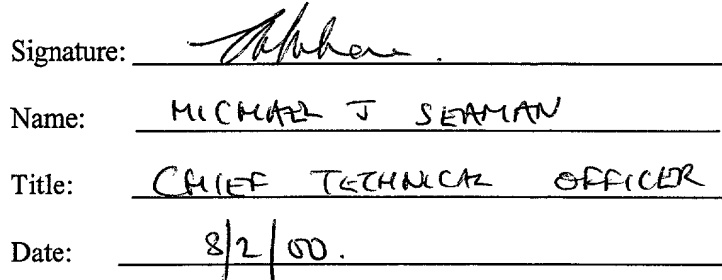 Signature:
Name: MICHAEL J SEAMAN
Title: CHIEF TECHNICAL OFFICER
Date: 8/2/00.